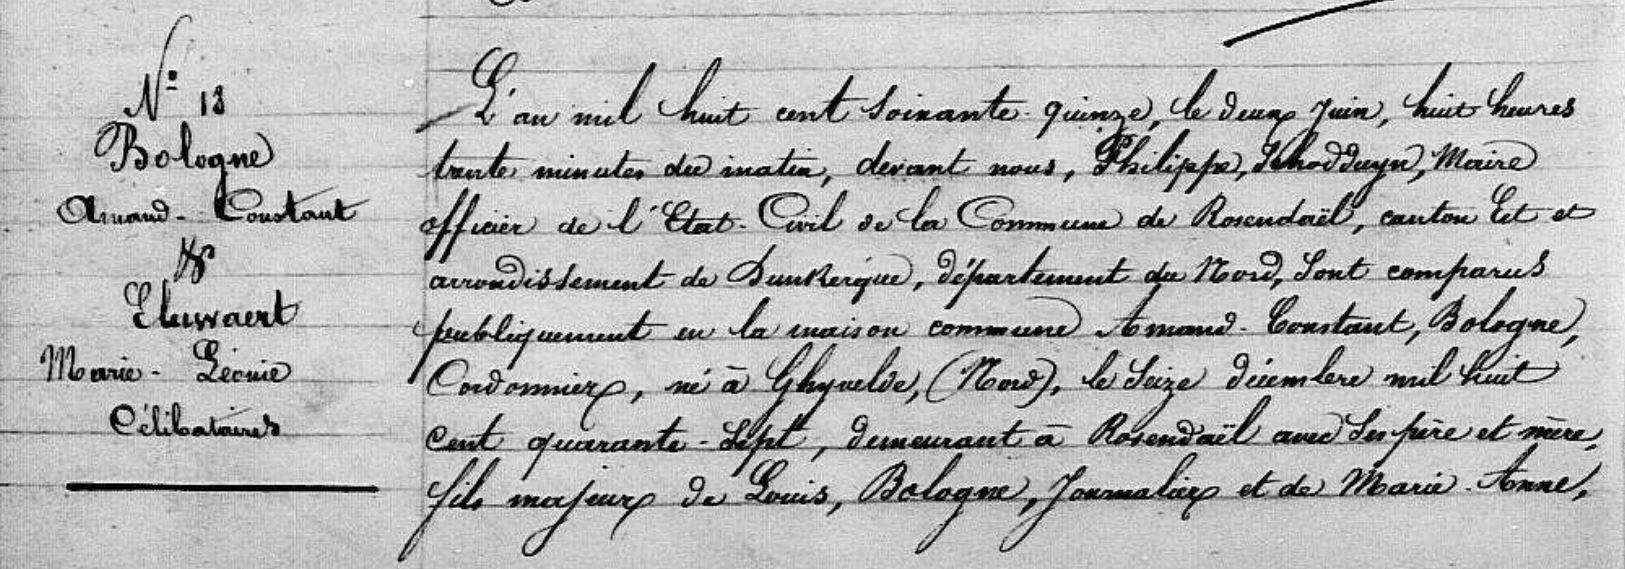 N° 13
Bologne
Amand - Constant
&
Eluwaert
Marie - Léonie
Célibataires
L'an mil huit cent soixante-quinze, le deux Juin, huit heures
trente minutes du matin, devant nous, Philippe, Maire
officier de l'Etat-Civil de la Commune de Rosendaël, canton Est et
arrondissement de Dunkerque, département du Nord, sont comparus
publiquement en la maison commune Amand-Constant, Bologne,
Cordonnier, né à Ghyvelde, (Nord), le seize décembre mil huit
cent quarante-sept, demeurant à Rosendaël avec ses père et mère,
fils majeur de Louis, Bologne, Journalier et de Marie-Anne,